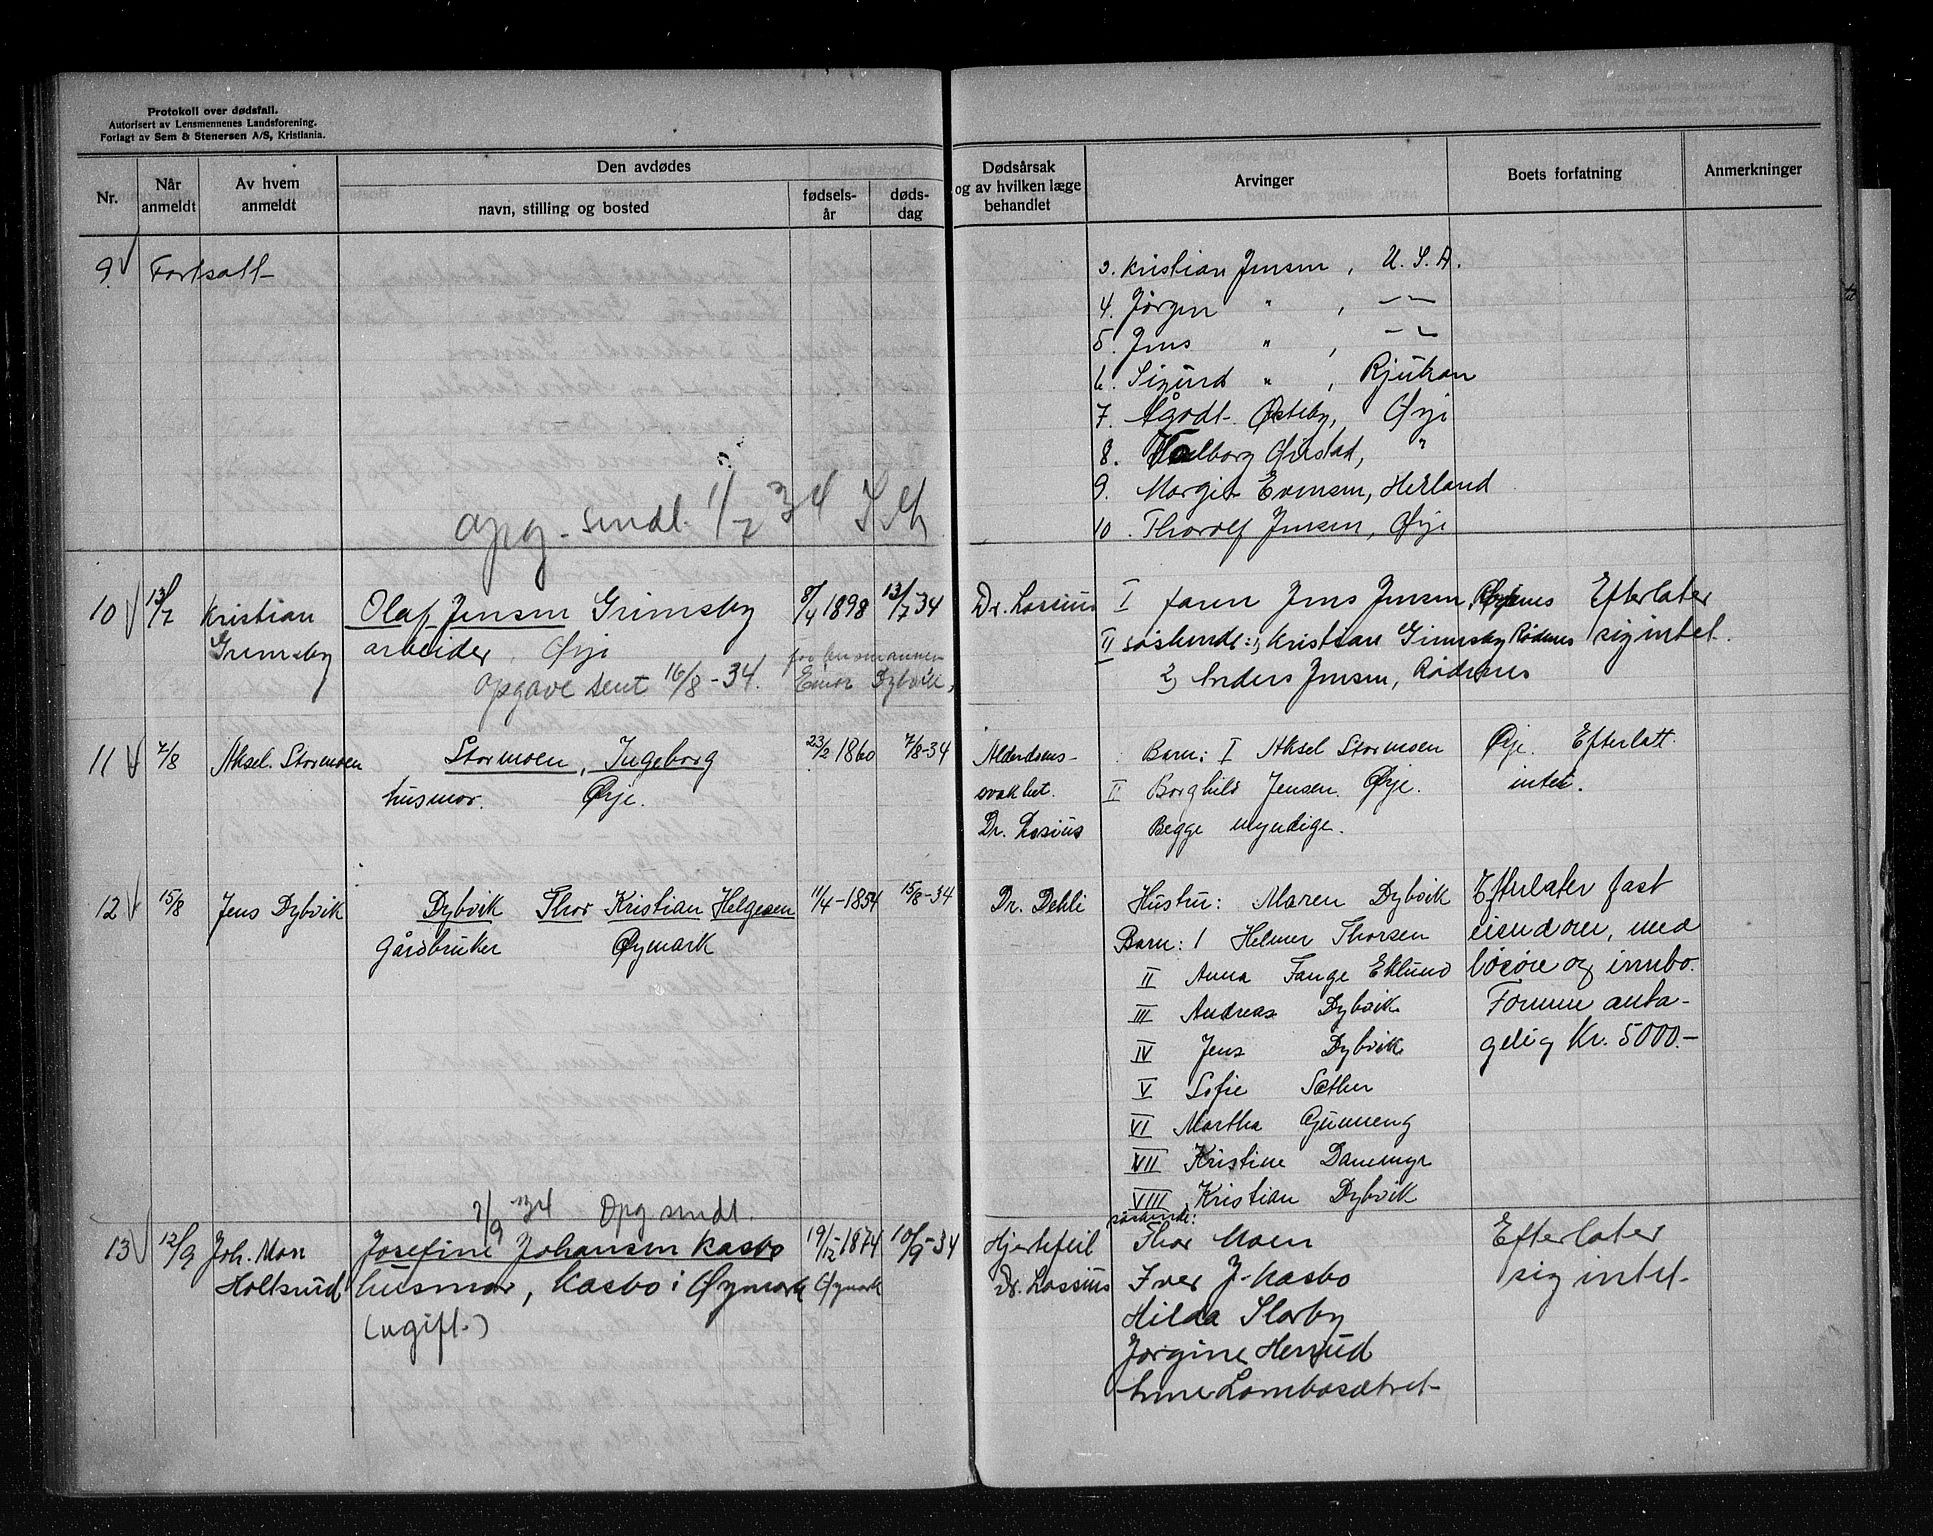 Protokoll over dødsfall.
Autorisert av Lensmennenes Landsforening.
Forlagt av Sem & Stenersen A/S, Kristiania.
Nr.
Når anmeldt
Av hvem anmeldt
Den avdødes
navn, stilling og bosted
fødsels-år
døds-dag
Dødsårsak og av hvilken læge behandlet
Arvinger
Boets forfatning
Anmerkninger
9. Fortsatt
3. Kristian Jensen, U.S.A.
4. Jørgen " , — " —
5. Jens " , — " —
6. Sigurd " , Rjukan
7. Aagodt Østeby, Ørje
8. Valborg Ørstad, "
9. Margit Evensen, Herland
10. Thorolf Jensen, Ørje
opg. sendt 1/7 34
10 13/7 Kristian Grimsby
Olaf Jensen Grimsby
arbeider, Ørje
opgave sent 16/8-34.
8/4 1898 13/7-34
Dr. Lassius
I faren Jens Jensen, Rødenes
II søskende: 1, Kristian Grimsby Rødenes
2, Anders Jensen, Rødenes
Efterlater
sig intet.
11 7/8 Aksel Stormoen
Stormoen, Ingeborg
husmor. Ørje.
23/2 1860 7/8-34
Alderdoms-
svakhet.
Dr. Lasius
Barn: I Aksel Stormoen Ørje.
II Borghild Jensen. Ørje.
Begge myndige.
Efterlatt
intet.
12 15/8 Jens Dybvik
Dybvik Thor Kristian Helgesen
gårdbruker Øymark
11/4-1854 15/8-34
Dr. Dehli
Hustru: Maren Dybvik
Barn: I Helmer Thorsen
II Anna Tange Eklund
III Andreas Dybvik
IV Jens Dybvik
V Sofie Sæther
VI Martha Gunneng
VII Kristine Damemyr
VIII Kristian Dybvik
Efterlater fast
eiendom, med
løsøre og innbo.
Formue anta-
gelig Kr. 5000.-
7/9 - 34 Opg sendt.
13 12/9 Joh. Moen
Holtsrud
Josefine Johansen Kasbo
husmor, Kasbo i Øymark
(ugift.)
19/12-1874 10/9-34
Øymark
Hjertefeil
Dr. Lassius
søskende:
Thor Moen
Iver J. Kasbo
Hilda Slorby
Jørgine Herrud
Anne Lombosætret
Efterlater
sig intet.